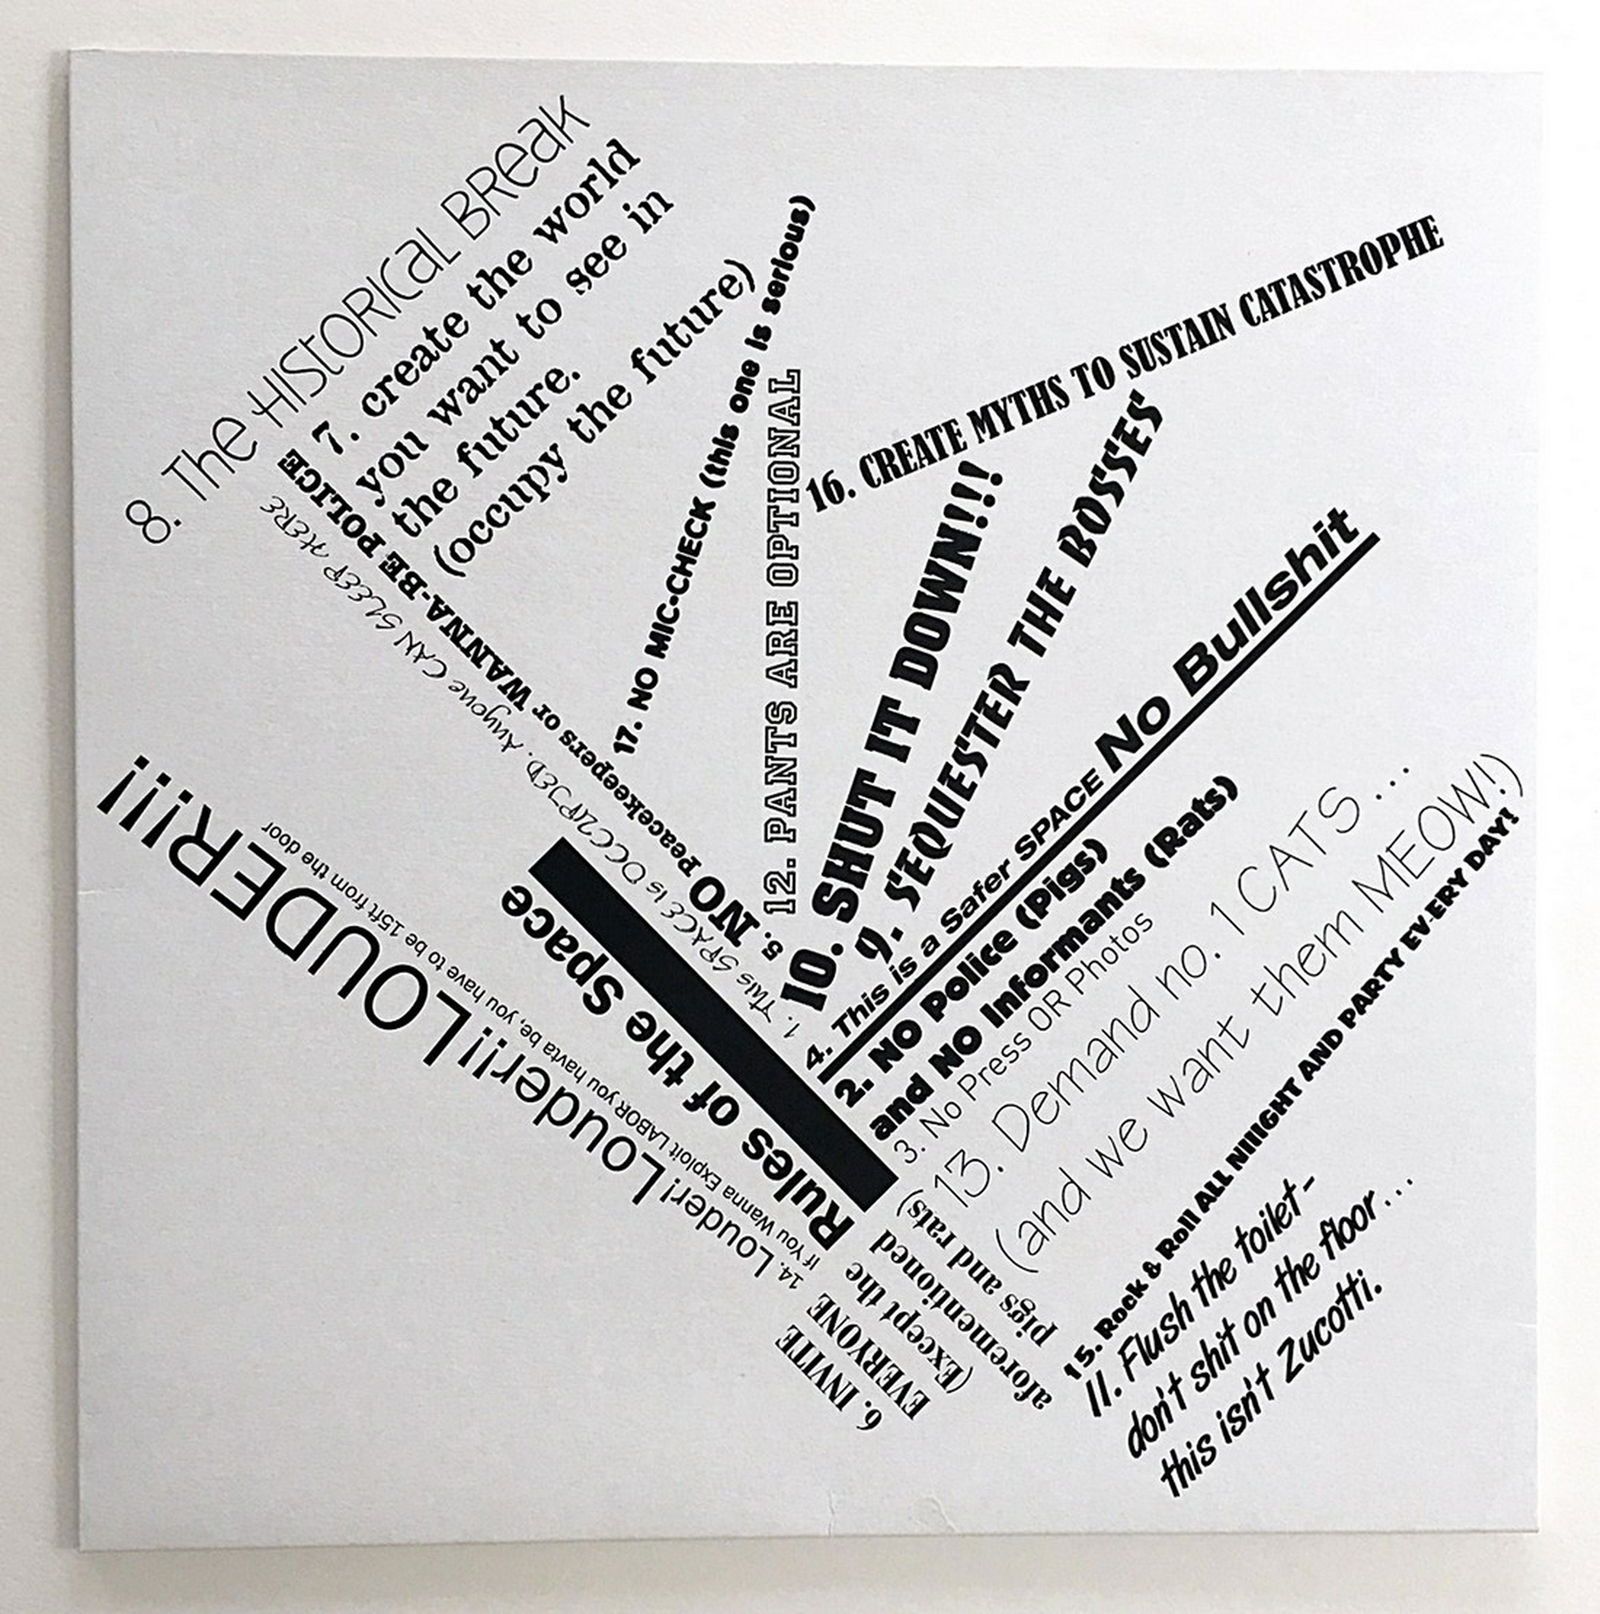 Rules of the Space
If You Wanna Exploit LABOR you havta be, you have to be 15ft from the door
1. This SPACE is OCCUPIED. Anyone CAN SLEEP HERE
2. NO Police (Pigs)
and NO Informants (Rats)
3. No Press OR Photos
4. This is a Safer SPACE No Bullshit
5. NO Peacekeepers or WANNA-BE POLICE
6. INVITE
EVERYONE
(Except the
aforementioned
pigs and rats)
7. create the world
you want to see in
the future.
(occupy the future)
8. The HIStORICaL BReak
9. SEQUESTER THE BOSSES
10. SHUT IT DOWN!!!
11. Flush the toilet-
don't shit on the floor...
this isn't Zucotti.
12. PANTS ARE OPTIONAL
13. Demand no. 1 CATS...
(and we want them MEOW!)
14. Louder! Louder!! LOUDER!!!
15. Rock & Roll ALL NIIIGHT AND PARTY EV-ERY DAY!
16. CREATE MYTHS TO SUSTAIN CATASTROPHE
17. NO MIC-CHECK (this one is serious)